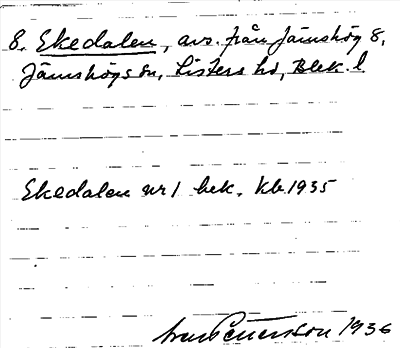 8. Ekedalen, avs. från Jämshög 8,
Jämshögs sn, Listers hd, Blek. l
Ekedalen nr 1 bek. kb. 1935
Pettersson 1936